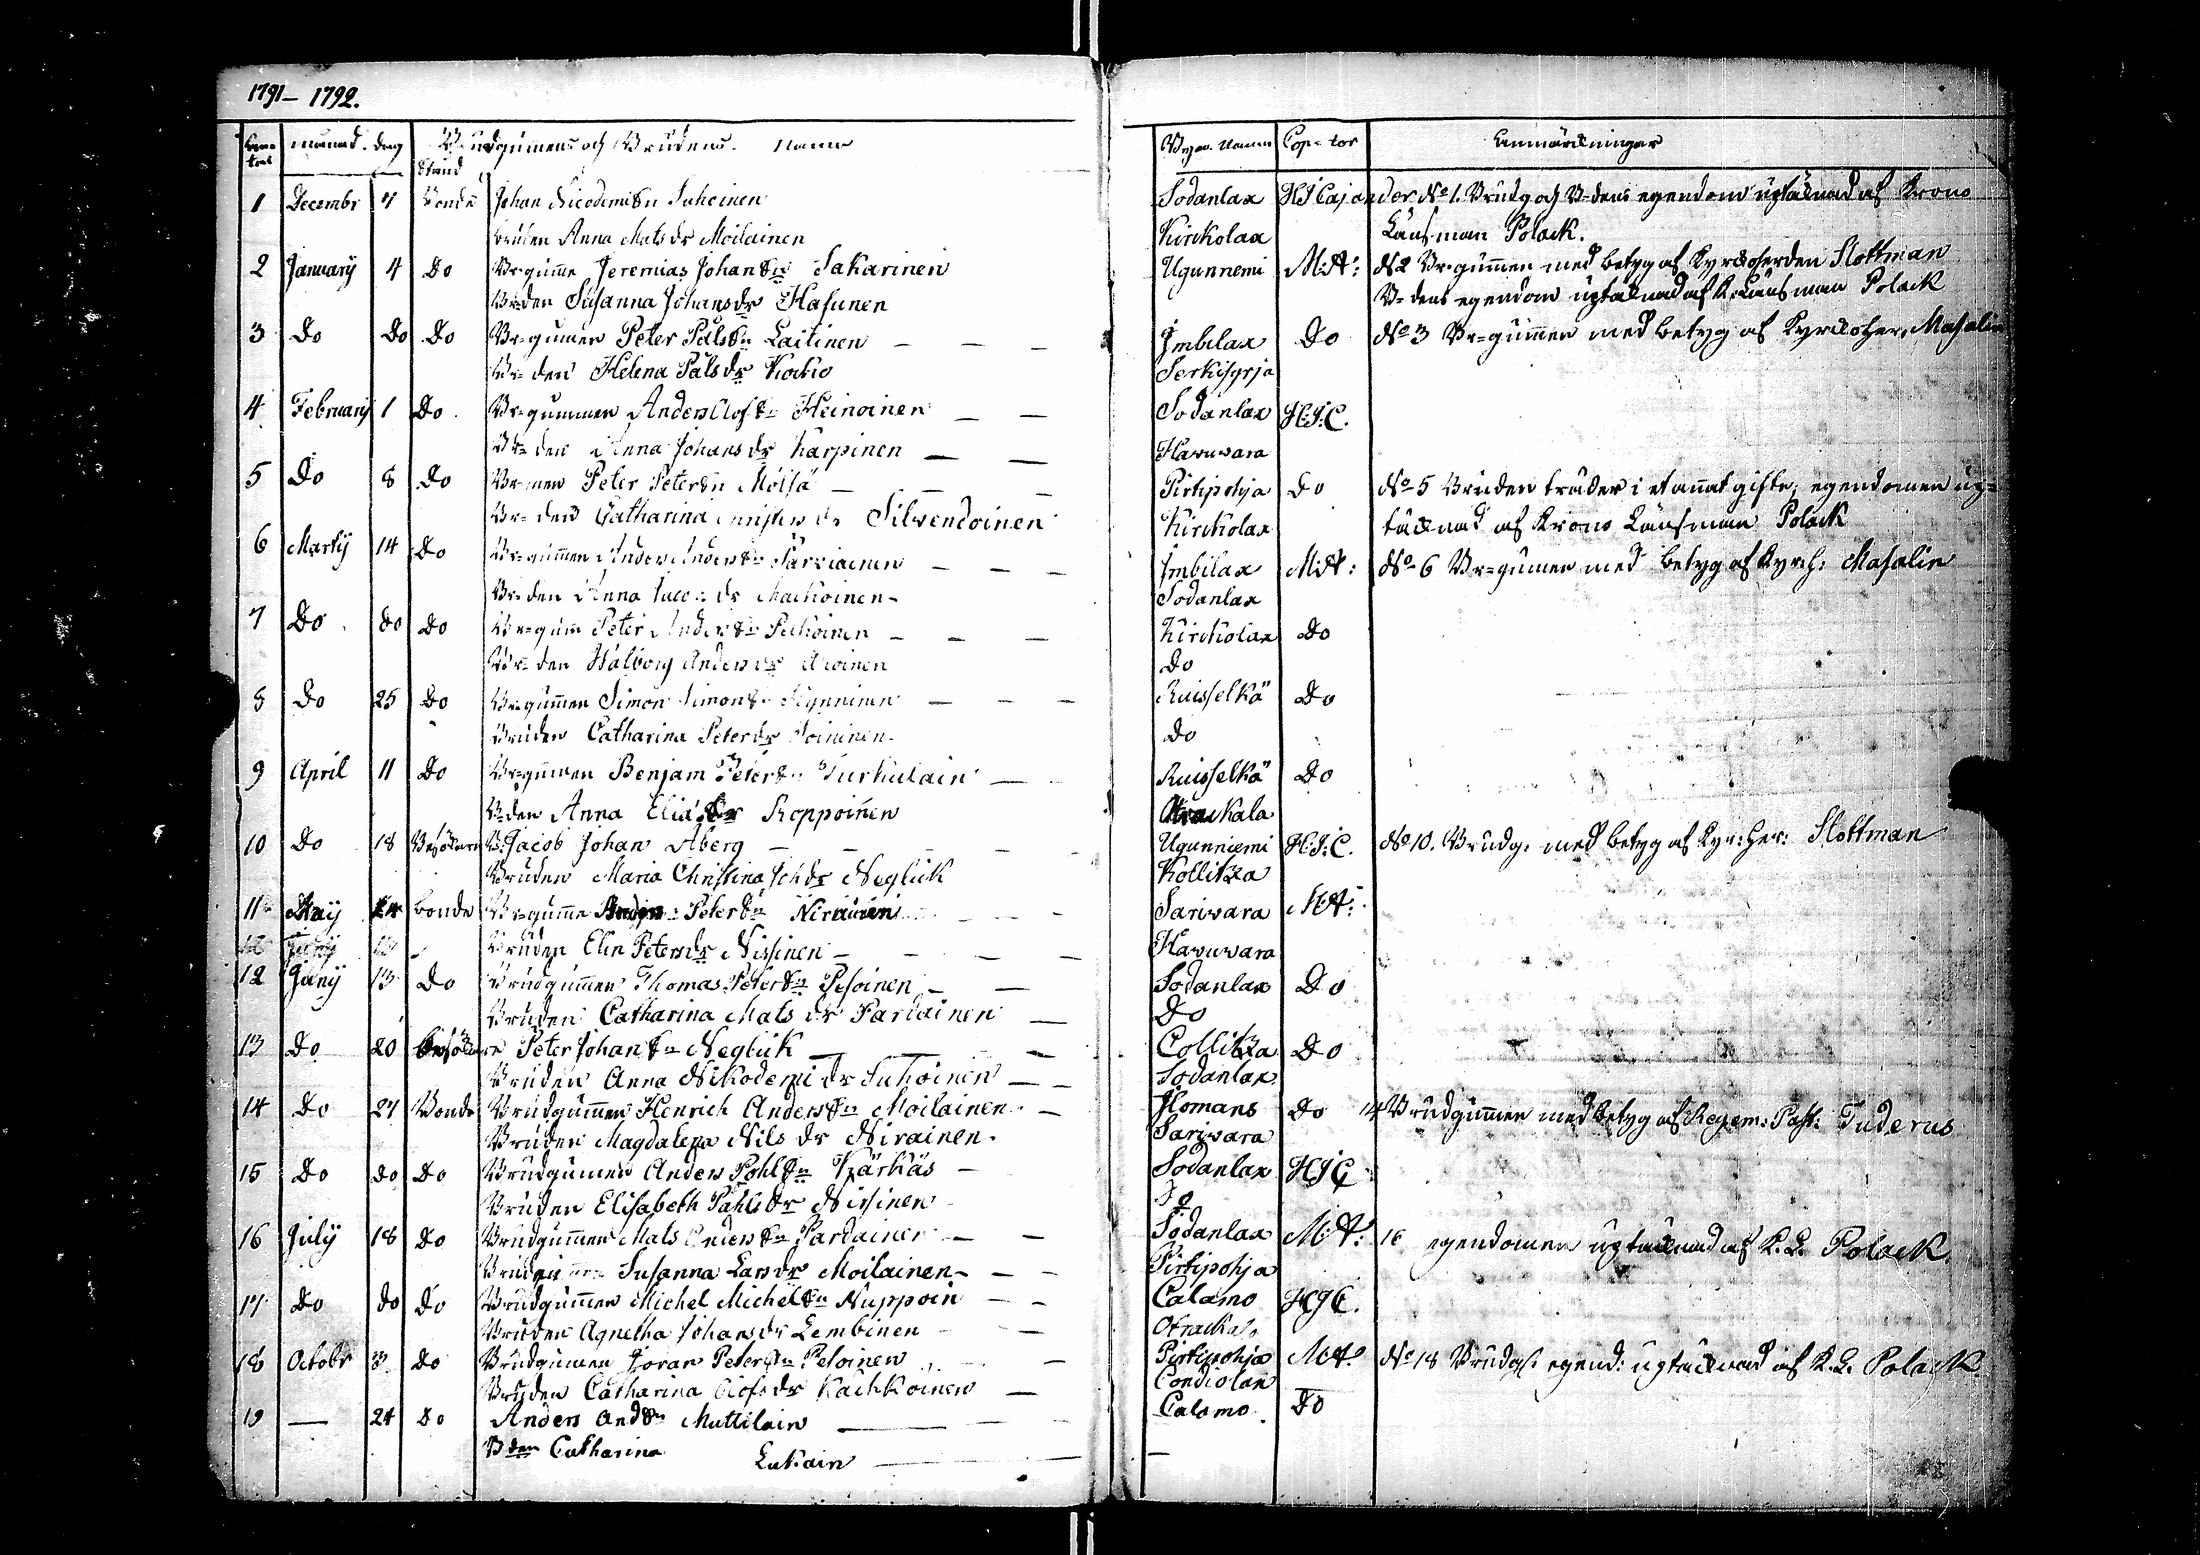 1791– 1792.
månad. dag Stånd Brudgumens och Brudens Namn Byar. Namn Cop-tor Anmärkningar
1 Decembr 7 Bonde Johan Nicodemi Sn Suhoinen Sodanlax HJ Cajander No 1. Brudg och B-dens egendom uptäknad af Krono
bruden Anna Mats dr Moilainen Kirckolax Länsman Polack.
2 January 4 Do Br-gumē Jeremias Johan Sn Sakarinen Ugunnemi M:A: N2 Br-gummen med betyg af Kyrckoherden Slottman
Br-den Susanna Johans dr Hasunen B-dens egendom uptäknad af K Länsman Polack
3 Do Do Do Br-gumen Peter Påls Sn Laitinen — — — Imbilax Do No 3 Br-gummen med betyg af Kyrckoher. Masalin
Br-den Helena Påls dr Kockio Serkisyrja
4 February 1 Do Br-gummen Anders Olof Sn Heinoinen — — Sodanlax H:J:C.
Br-den Anna Johans dr Karpinen — — Havuvara
5 Do 8 Do Br-men Peter Peter Sn Moisä — — — Pirtipohja Do No 5 Bruden träder i et annat gifte, egendomen up-
Br-den Catharina dr Silvendoinen Kirckolax täcknad af Krono Länsman Polack
6 Martij 14 Do Br-gummen Anders Anders Sn Parviainen — — — Imbilax M:A: No 6 Br-gumen med betyg af Kyrch: Masalin
Br-den Anna Jaco dr Mackoinen – Sodanlax
7 Do do Do Br-gum Peter Anders Sn Pukoinen — — — Kirckolax Do
Br-den Walborg Anders dr Do
8 Do 25 Do Br-gummen Simon Simon Sn — — — Ruisselkä Do
Bruden Catharina Peter dr Soininen. Do
9 April 11 Do Br-gumen Benjam Peter Sn Turkulain — Ruisselkä Do
B-den Anna Elias dr Roppoinen Otrackala
10 Do 18 B: Jacob Johan Åberg — — — — Ugunniemi H:J:C. No 10. Brudg. med betyg af Kyr:her: Slottman
Bruden Maria Christina Joh dr Neglick Kollitza
11 May 24 bonde Br-gumme Peter Sn Nirainen Sarivara M:A:
12 Juny 13 Bruden Elin Peters dr Nissinen — — — — Havuvara
12 Juny 13 Do Brudgummen Thomas Peter Sn Pesoinen — — Sodanlax Do
Bruden Catharina Mats dr Pardainen — Do
13 Do 20 Peter Johan Sn Neglick — — — Collitza Do
Bruden Anna Nikodemi dr Suhoinen — — Sodanlax
14 Do 27 Bonde Brudgummen Henrich Anders Sn Moilainen — Ilomans Do 14 Brudgummen med betyg af Regem: Past: Tuderus
Bruden Magdalena Nils dr Nirainen. Sarivara
15 Do do Do Brudgumen Anders Pohl Sn Kärkäs — Sodanlax HJC
Bruden Elisabeth Pahls dr Nissinen Do
16 July 18 Do Brudgummen Mats Anders Sn Pardainen — — Sodanlax M:A: 16 egendomen uptäcknad af K. L. Polack.
Bruden Susanna Lars dr Moilainen — — — Pirtipohja
17 Do do Do Brudgummen Michel Michel Sn Nuppoin — — Calamo HJC.
Bruden Agnetha Johans dr Lembinen — — Otrackala
18 Octobr 3 Do Brudgumen Joran Peter Sn Peloinen — Pirtipohja M:A: No 18 Brudgs: egend: uptäcknad af K. L. Polack.
Bruden Catharina Olofs dr Kackkoinen — Condiolax
19 — 24 Do Anders And Sn Muttilain — Calamo Do
Bden Catharina Lukain — —